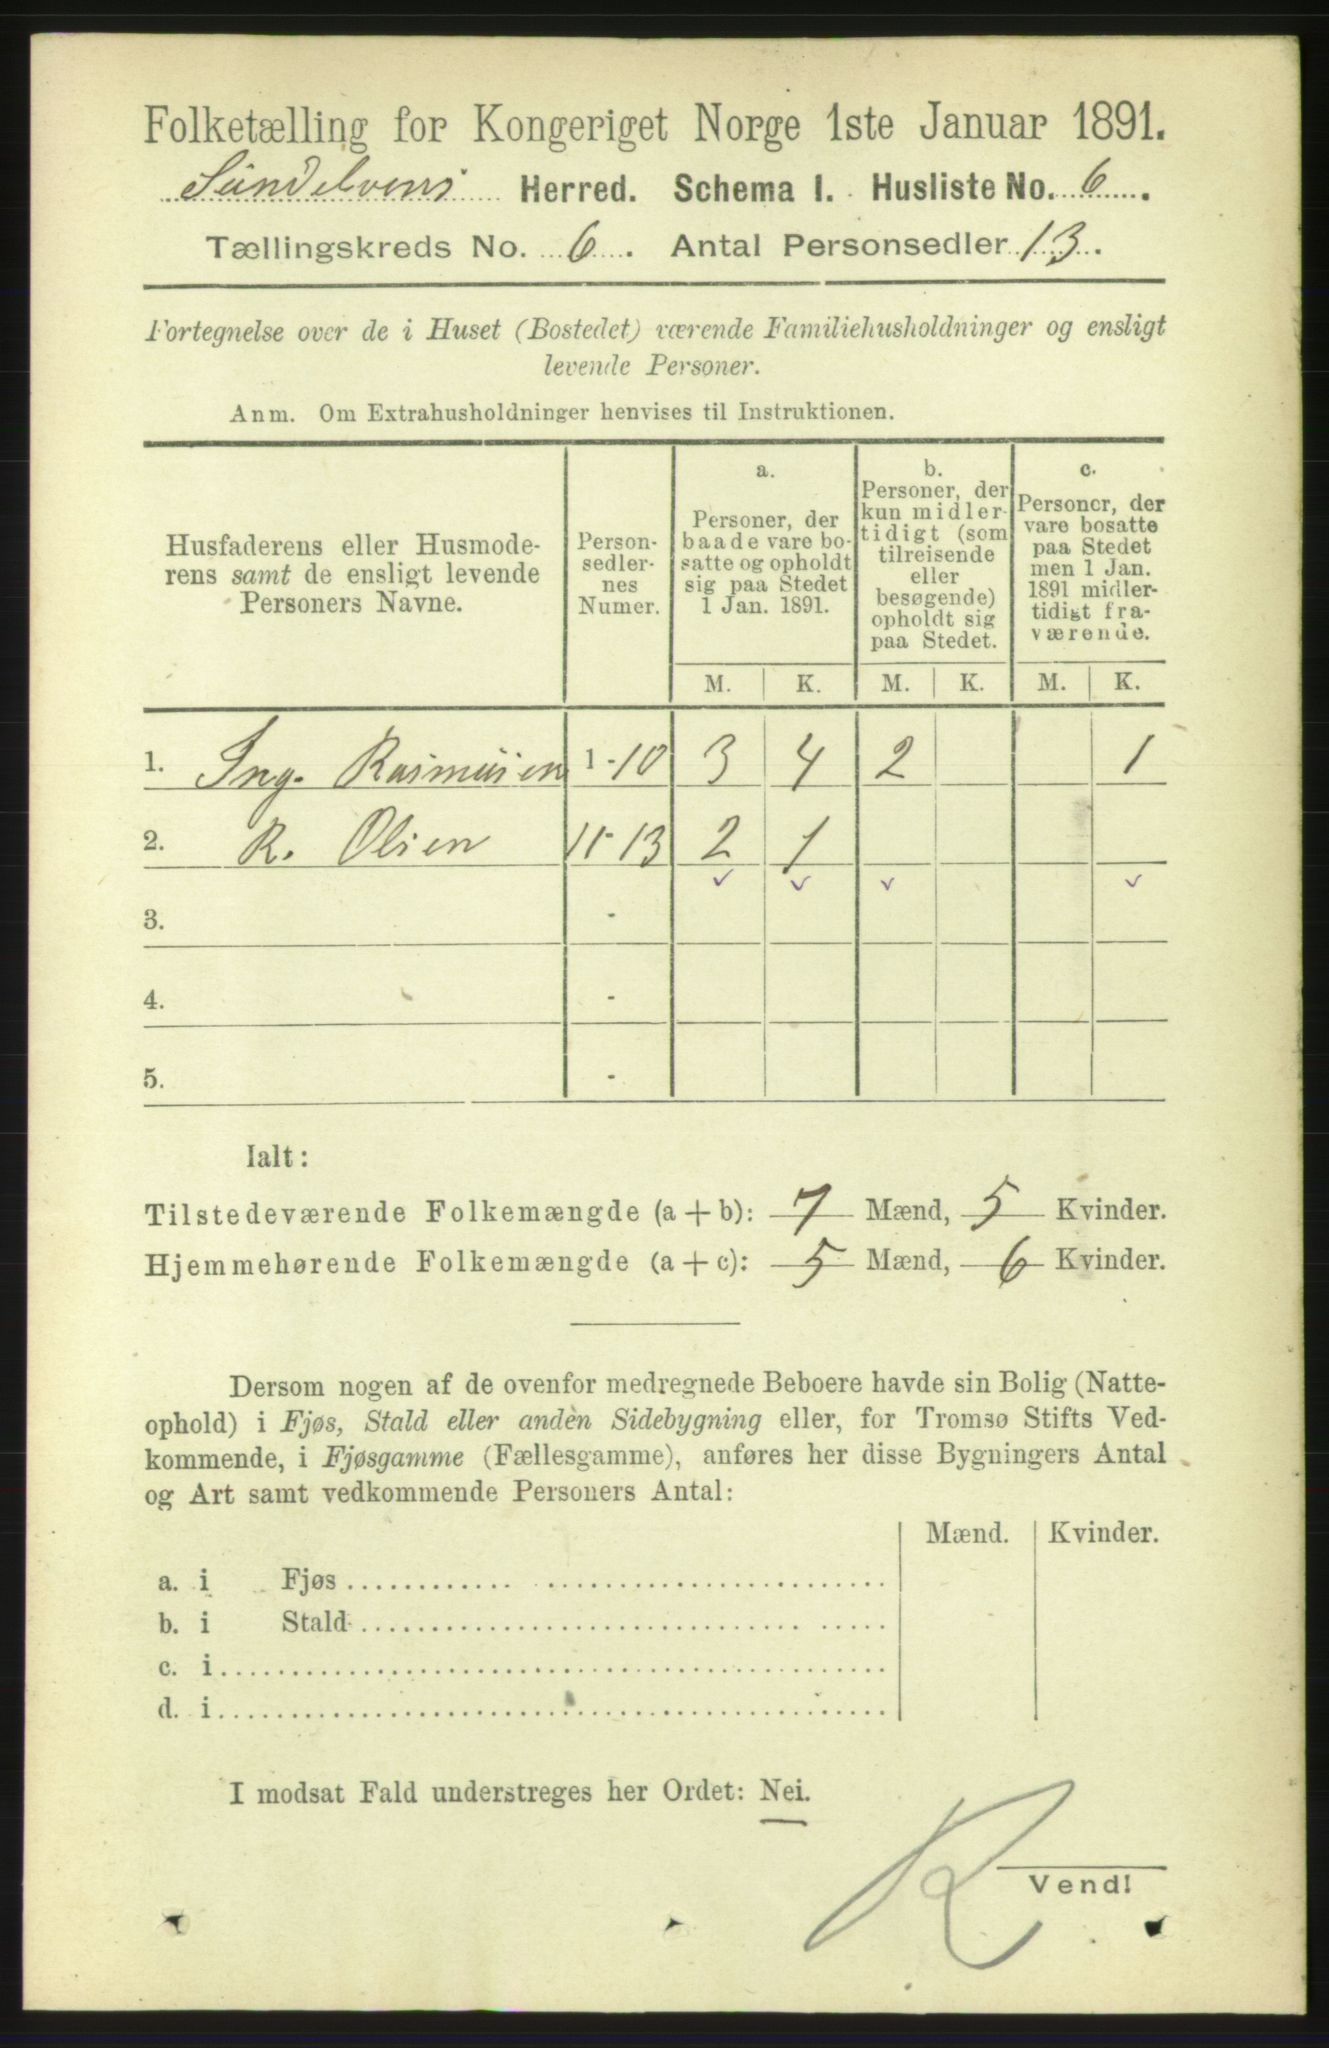 Folketælling for Kongeriget Norge 1ste Januar 1891.
Søndelvens Herred. Schema I. Husliste No. 6.
Tællingskreds No. 6. Antal Personsedler 13.
Fortegnelse over de i Huset (Bostedet) værende Familiehusholdninger og ensligt
levende Personer.
Anm. Om Extrahusholdninger henvises til Instruktionen.
Husfaderens eller Husmode-
rens samt de ensligt levende
Personers Navne.
Person-
sedler-
nes
Numer.
a.
Personer, der
baade vare bo-
satte og opholdt
sig paa Stedet
1 Jan. 1891.
b.
Personer, der
kun midler-
tidigt (som
tilreisende
eller
besøgende)
opholdt sig
paa Stedet.
c.
Personer, der
vare bosatte
paa Stedet
men 1 Jan.
1891 midler-
tidigt fra-
værende.
M. K. M. K. M. K.
1. Ing. Rasmusen 1-10 3 4 2 1
2. R. Olsen 11-13 2 1
3. -
4. -
5. -
Ialt:
Tilstedeværende Folkemængde (a + b): 7 Mænd, 5 Kvinder.
Hjemmehørende Folkemængde (a + c): 5 Mænd, 6 Kvinder.
Dersom nogen af de ovenfor medregnede Beboere havde sin Bolig (Natte-
ophold) i Fjøs, Stald eller anden Sidebygning eller, for Tromsø Stifts Ved-
kommende, i Fjøsgamme (Fællesgamme), anføres her disse Bygningers Antal
og Art samt vedkommende Personers Antal:
Mænd. Kvinder.
a. i Fjøs
b. i Stald
c. i
d. i
I modsat Fald understreges her Ordet: Nei.
R
Vend!